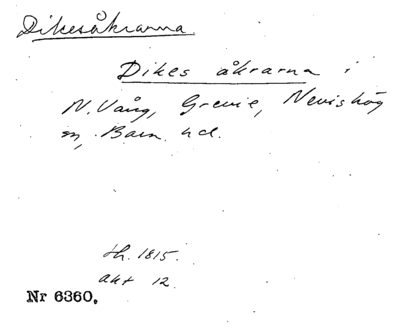 Dikesåkrarna
Dikes åkrarna i
N. Vång, Grevie, Nevishög
m, Bara hd.
th. 1815.
akt 12.
Nr 6360.